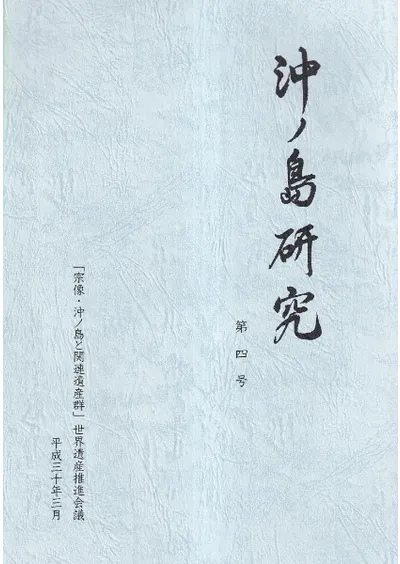 沖ノ島研究
第四号
「宗像・沖ノ島と関連遺産群」世界遺産推進会議
平成三十年三月